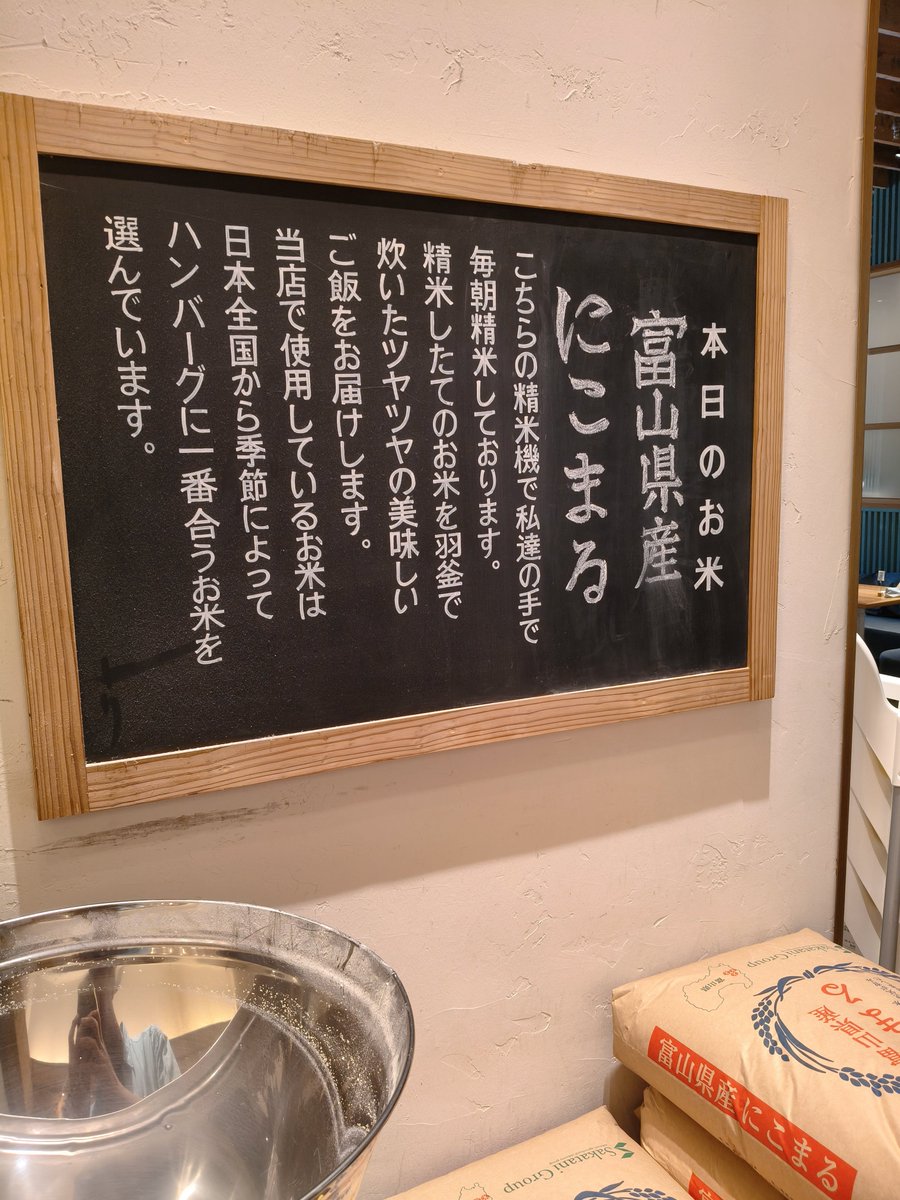 本日のお米
富山県産
にこまる
こちらの精米機で私達の手で
毎朝精米しております。
精米したてのお米を羽釜で
炊いたツヤツヤの美味しい
ご飯をお届けします。
当店で使用しているお米は
日本全国から季節によって
ハンバーグに一番合うお米を
選んでいます。
Sakatani Group
富山県
富山県産
富山県産にこまる
Sakatani Group